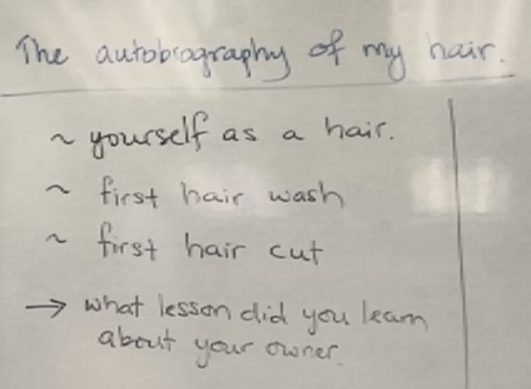 The autobiography of my hair.
~ yourself as a hair.
~ first hair wash
~ first hair cut
→ what lesson did you learn
about your owner.